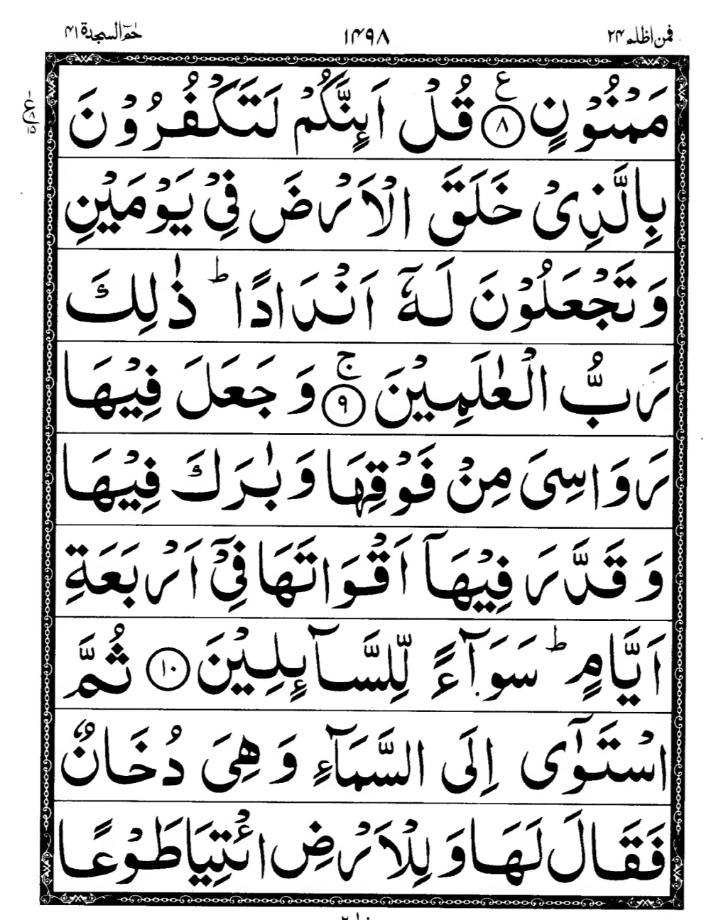 فمن اظلم ۲۴ ۱۴۹۸ حٰمٓ السجدة ۴۱
مَمْنُوْنٍ ۝۸ ع قُلْ اَىِٕنَّكُمْ لَتَكْفُرُوْنَ
بِالَّذِىْ خَلَقَ الْاَرْضَ فِىْ يَوْمَيْنِ
وَتَجْعَلُوْنَ لَهٗۤ اَنْدَادًا ؕ ذٰلِكَ
رَبُّ الْعٰلَمِيْنَ ۝۹ ج وَ جَعَلَ فِيْهَا
رَوَاسِىَ مِنْ فَوْقِهَا وَ بٰرَكَ فِيْهَا
وَ قَدَّرَ فِيْهَاۤ اَقْوَاتَهَا فِىْۤ اَرْبَعَةِ
اَيَّامٍ ؕ سَوَآءً لِّلسَّآىِٕلِيْنَ ۝۱۰ ثُمَّ
اسْتَوٰۤى اِلَى السَّمَآءِ وَ هِىَ دُخَانٌ
فَقَالَ لَهَا وَ لِلْاَرْضِ ائْتِيَا طَوْعًا